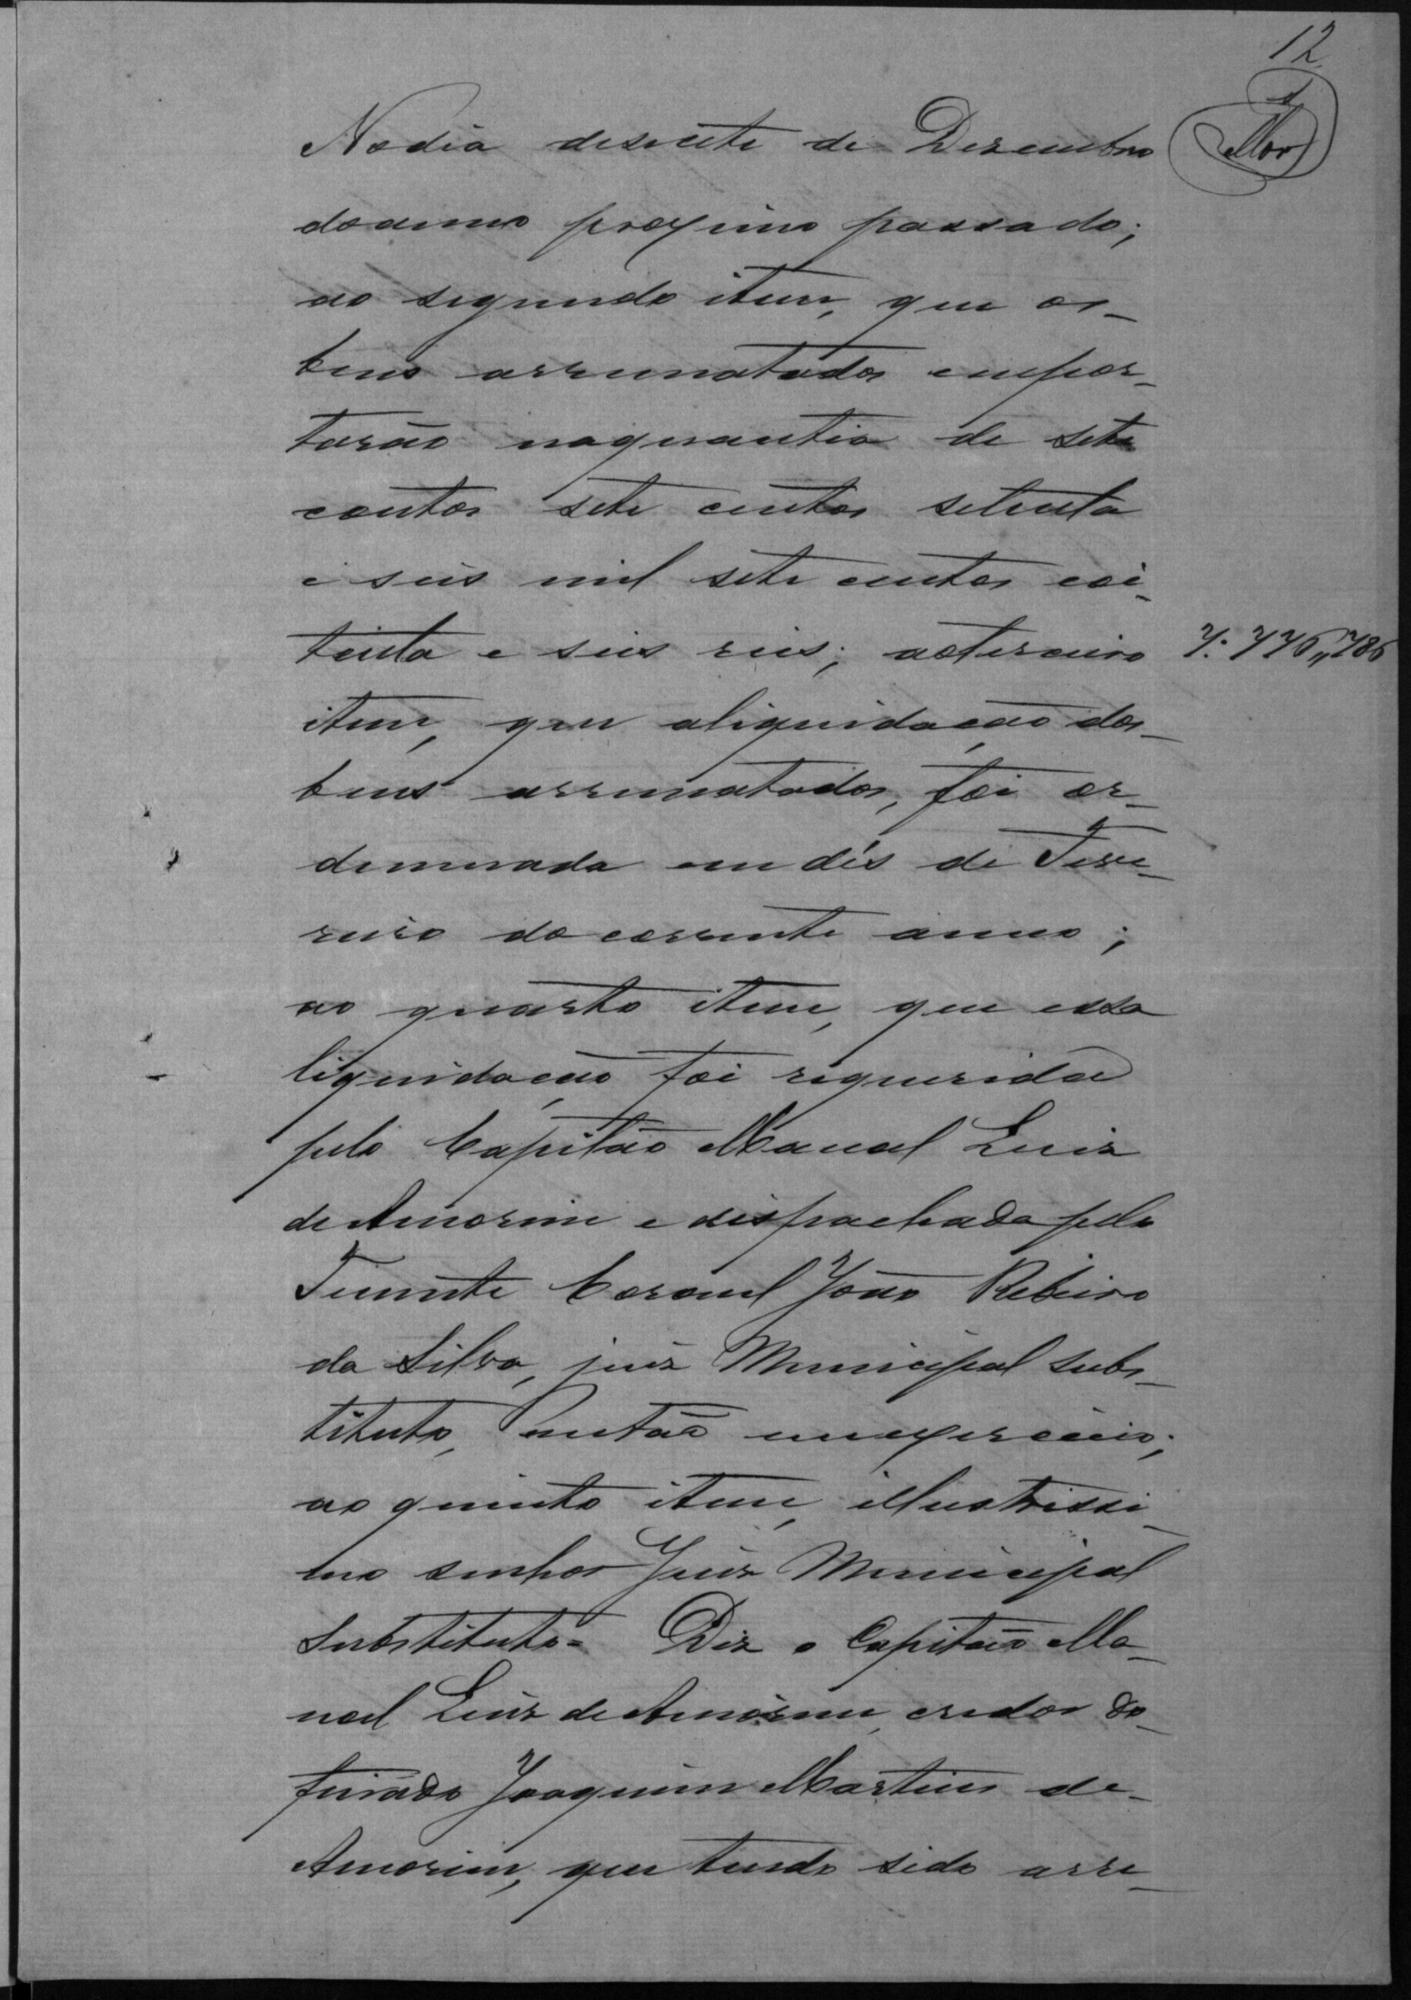 12
Mor
No dia desecete de Dezembro
do anno proximo passado;
ao segundo item, que os
bens arrematados empor-
tarão na quantia de sete
contos sete centos setenta
e seis mil sete centos coi-
tenta e seis reis; ao terceiro
7:776,,786
item, que a liquidação dos
bens arrematados, foi or-
demnada em dés de Feve-
reiro do corrente anno;
ao quarto item, que essa
liquidação foi requerida
pelo Capitão Manoel Luiz
de Amorim e dispachada pelo
Tenente Coronel João Ribeiro
da Silva, juiz Municipal subs-
tituto, então em exercicio;
ao quinto item, illustrissi-
mo senhor Juiz Municipal
Substituto = Diz o Capitão Ma-
noel Luiz de Amorim, credor do
finado Joaquim Martins de
Amorim, que tendo sido arre-